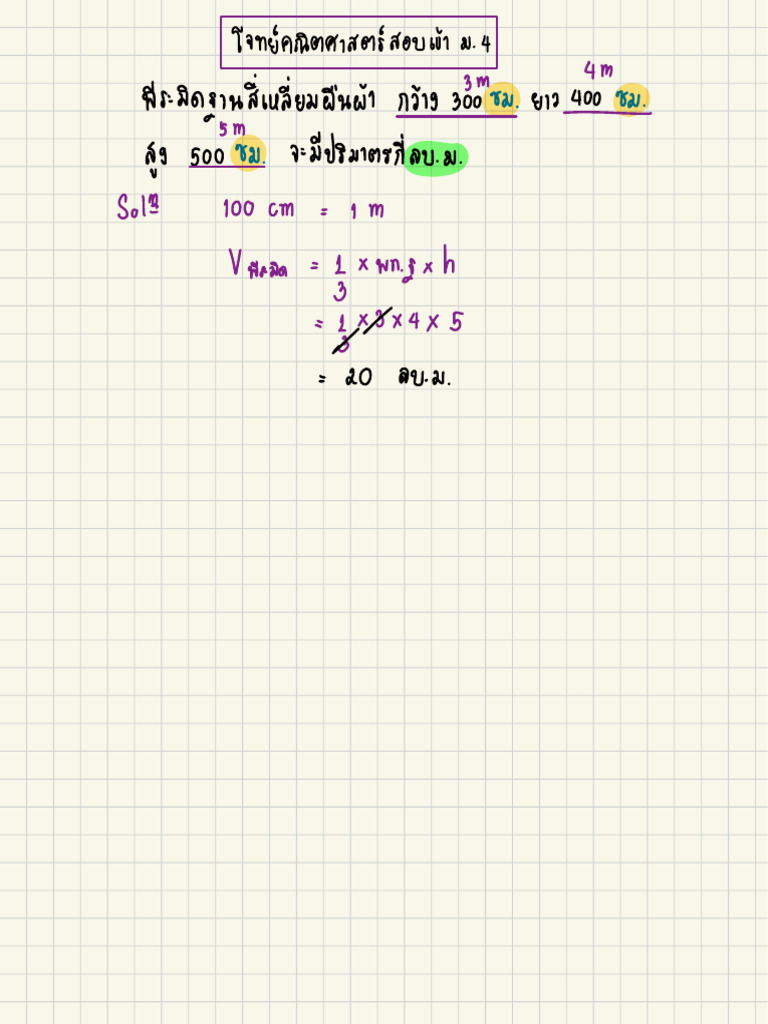 โจทย์คณิตศาสตร์สอบเข้า ม.4
3 m 4 m
พีระมิดฐานสี่เหลี่ยมผืนผ้า กว้าง 300 ซม. ยาว 400 ซม.
5 m
สูง 500 ซม. จะมีปริมาตรกี่ลบ.ม.
Solⁿ 100 cm = 1 m
V พีระมิด = 1/3 × พท.ฐ × h
= 1/3 × 3 × 4 × 5
= 20 ลบ.ม.